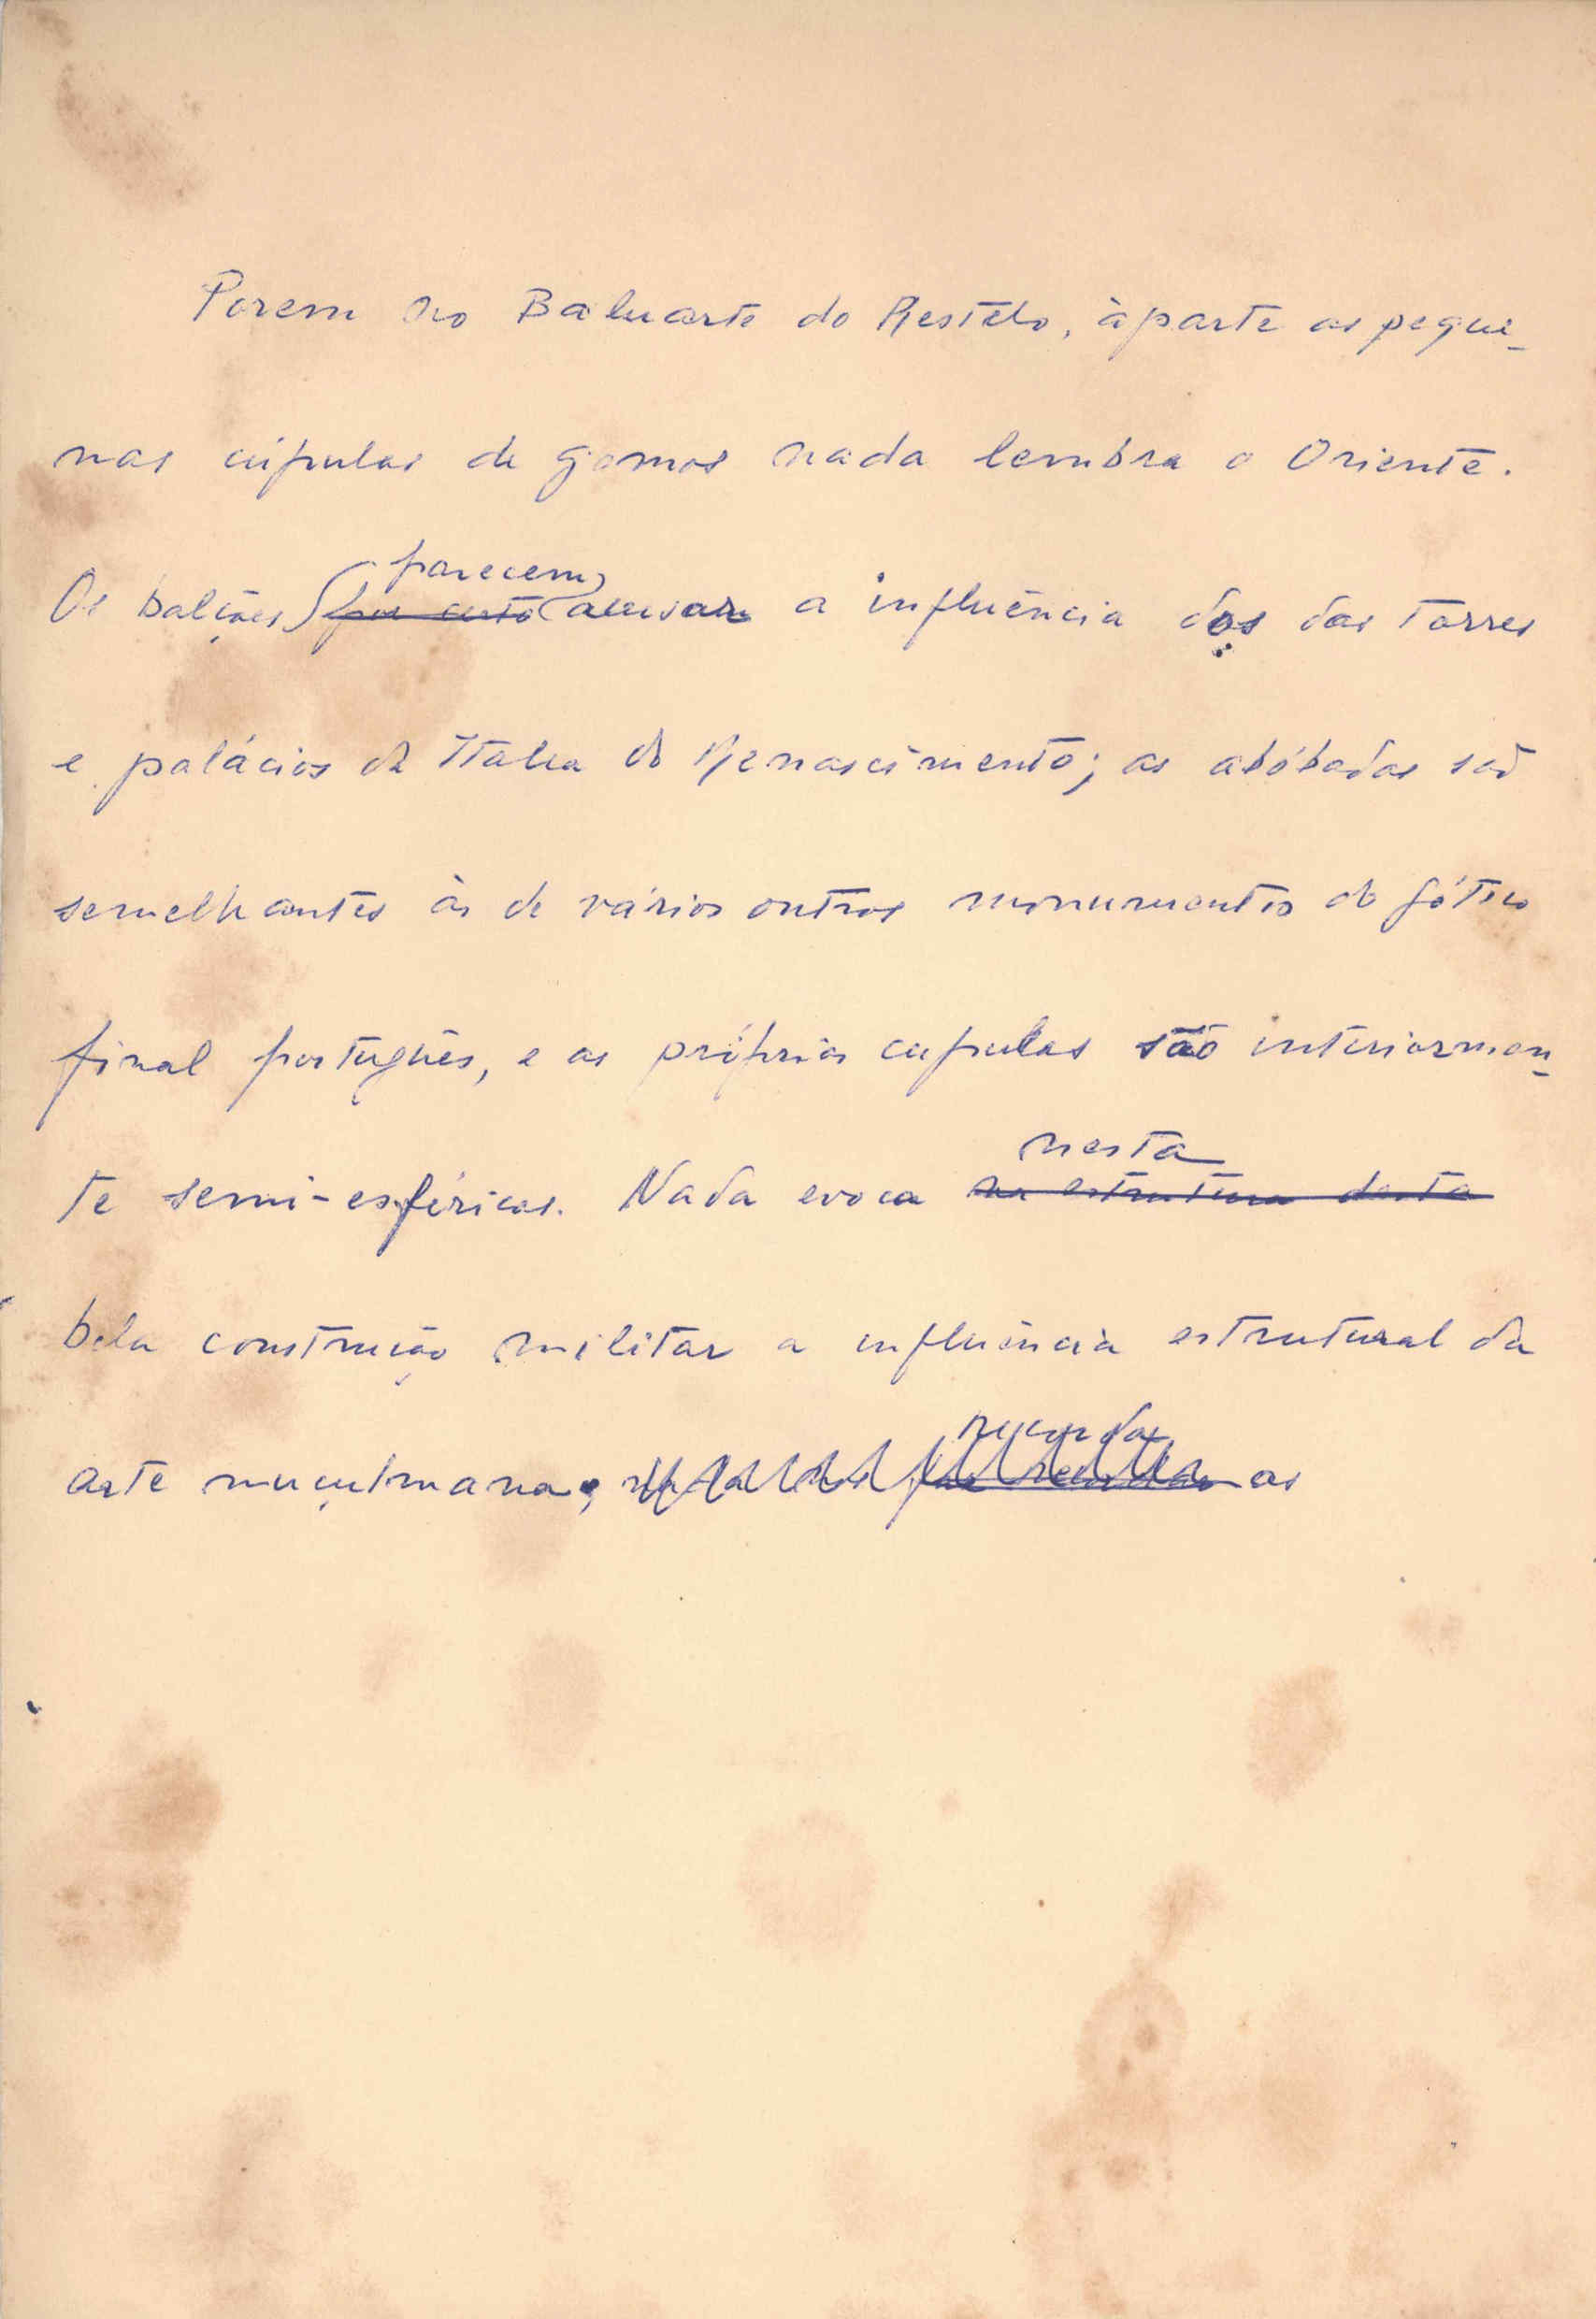 Porem no Baluarte do Restelo, àparte as peque-
nas cúpulas de gomos nada lembra o Oriente.
parecem
Os balcões por certo acusar a influência dos das torres
e palácios da Italia do Renascimento; as abóbadas são
semelhantes às de vários outros monumentos do gótico
final português, e as próprias cupulas são interiormen-
te semi-esféricas. Nada evoca na estrutura desta
nesta
bela construção militar a influência estrutural da
recorda
arte muçulmana, as